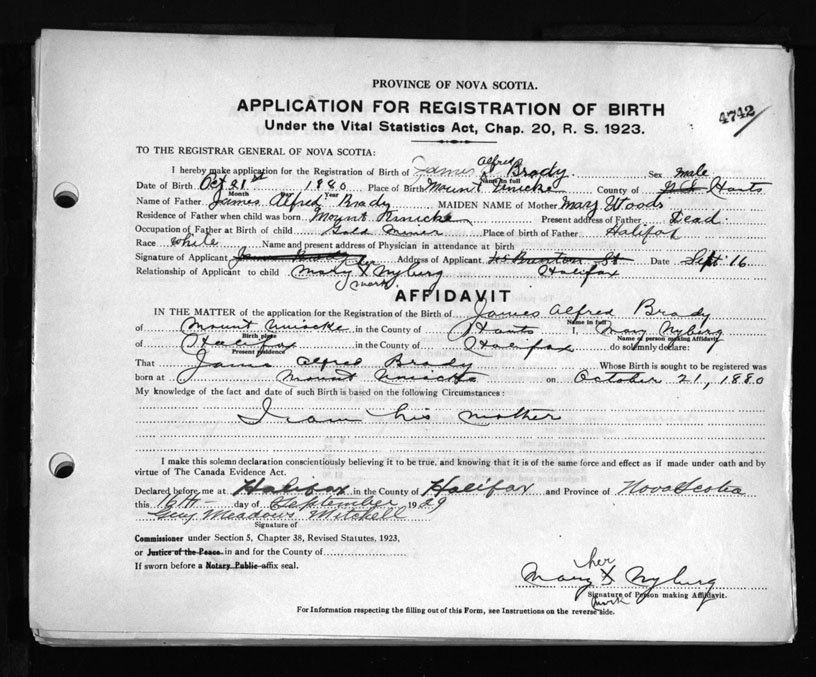 PROVINCE OF NOVA SCOTIA.
APPLICATION FOR REGISTRATION OF BIRTH
4742
Under the Vital Statistics Act, Chap. 20, R. S. 1923.
TO THE REGISTRAR GENERAL OF NOVA SCOTIA:
I hereby make application for the Registration of Birth of James Alfred Brady Name in full Sex male
Date of Birth Oct 21st 1880 Place of Birth Mount Uniacke County of Hants
Month Day Year
Name of Father James Alfred Brady MAIDEN NAME of Mother Mary Woods
Residence of Father when child was born Mount Uniacke Present address of Father Dead
Occupation of Father at Birth of child Gold Miner Place of birth of Father Halifax
Race White Name and present address of Physician in attendance at birth
Signature of Applicant James Brady Address of Applicant Brenton St Date Sept 16
Relationship of Applicant to child Mary X Nyburg Halifax
her mark
AFFIDAVIT
IN THE MATTER of the application for the Registration of the Birth of James Alfred Brady
Name in full
of Mount Uniacke in the County of Hants I, Mary Nyberg
Birth place Name of person making Affidavit
of Halifax in the County of Halifax do solemnly declare:
Present residence
That James Alfred Brady Whose Birth is sought to be registered was
born at Mount Uniacke on October 21, 1880
My knowledge of the fact and date of such Birth is based on the following Circumstances:
I am his mother
I make this solemn declaration conscientiously believing it to be true, and knowing that it is of the same force and effect as if made under oath and by
virtue of The Canada Evidence Act.
Declared before me at Halifax in the County of Halifax and Province of Nova Scotia
this day of September 19
Guy Meadows Mitchell
Signature of
Commissioner under Section 5, Chapter 38, Revised Statutes, 1923,
or Justice of the Peace in and for the County of
If sworn before a Notary Public affix seal.
her
Mary X Nyburg
Signature of Person making Affidavit.
mark
For Information respecting the filling out of this Form, see Instructions on the reverse side.